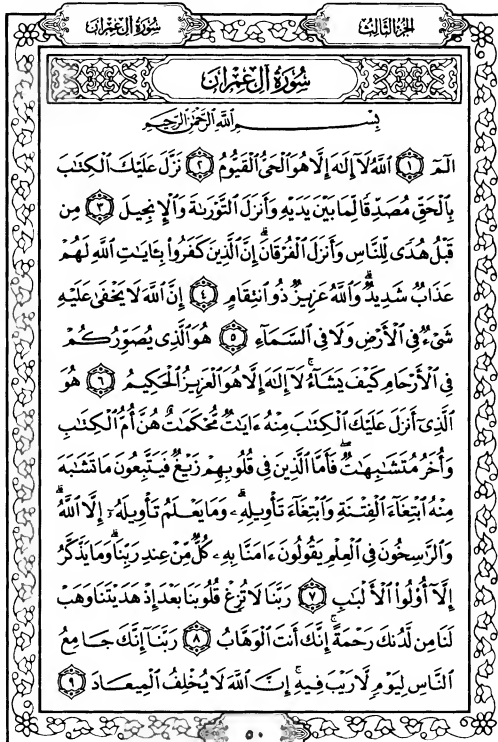 الجزء الثالث
سورة آل عمران
سُورَةُ آلِ عِمْرَانَ
بِسْمِ اللَّهِ الرَّحْمَٰنِ الرَّحِيمِ
الٓمٓ ١ ٱللَّهُ لَآ إِلَٰهَ إِلَّا هُوَ ٱلْحَىُّ ٱلْقَيُّومُ ٢ نَزَّلَ عَلَيْكَ ٱلْكِتَٰبَ
بِٱلْحَقِّ مُصَدِّقًا لِّمَا بَيْنَ يَدَيْهِ وَأَنزَلَ ٱلتَّوْرَىٰةَ وَٱلْإِنجِيلَ ٣ مِن
قَبْلُ هُدًى لِّلنَّاسِ وَأَنزَلَ ٱلْفُرْقَانَ ۗ إِنَّ ٱلَّذِينَ كَفَرُوا۟ بِـَٔايَٰتِ ٱللَّهِ لَهُمْ
عَذَابٌ شَدِيدٌ ۗ وَٱللَّهُ عَزِيزٌ ذُو ٱنتِقَامٍ ٤ إِنَّ ٱللَّهَ لَا يَخْفَىٰ عَلَيْهِ
شَىْءٌ فِى ٱلْأَرْضِ وَلَا فِى ٱلسَّمَآءِ ٥ هُوَ ٱلَّذِى يُصَوِّرُكُمْ
فِى ٱلْأَرْحَامِ كَيْفَ يَشَآءُ ۚ لَآ إِلَٰهَ إِلَّا هُوَ ٱلْعَزِيزُ ٱلْحَكِيمُ ٦ هُوَ
ٱلَّذِىٓ أَنزَلَ عَلَيْكَ ٱلْكِتَٰبَ مِنْهُ ءَايَٰتٌ مُّحْكَمَٰتٌ هُنَّ أُمُّ ٱلْكِتَٰبِ
وَأُخَرُ مُتَشَٰبِهَٰتٌ ۖ فَأَمَّا ٱلَّذِينَ فِى قُلُوبِهِمْ زَيْغٌ فَيَتَّبِعُونَ مَا تَشَٰبَهَ
مِنْهُ ٱبْتِغَآءَ ٱلْفِتْنَةِ وَٱبْتِغَآءَ تَأْوِيلِهِۦ ۗ وَمَا يَعْلَمُ تَأْوِيلَهُۥٓ إِلَّا ٱللَّهُ ۗ
وَٱلرَّٰسِخُونَ فِى ٱلْعِلْمِ يَقُولُونَ ءَامَنَّا بِهِۦ كُلٌّ مِّنْ عِندِ رَبِّنَا ۗ وَمَا يَذَّكَّرُ
إِلَّآ أُو۟لُوا۟ ٱلْأَلْبَٰبِ ٧ رَبَّنَا لَا تُزِغْ قُلُوبَنَا بَعْدَ إِذْ هَدَيْتَنَا وَهَبْ
لَنَا مِن لَّدُنكَ رَحْمَةً ۚ إِنَّكَ أَنتَ ٱلْوَهَّابُ ٨ رَبَّنَآ إِنَّكَ جَامِعُ
ٱلنَّاسِ لِيَوْمٍ لَّا رَيْبَ فِيهِ ۚ إِنَّ ٱللَّهَ لَا يُخْلِفُ ٱلْمِيعَادَ ٩
٥٠